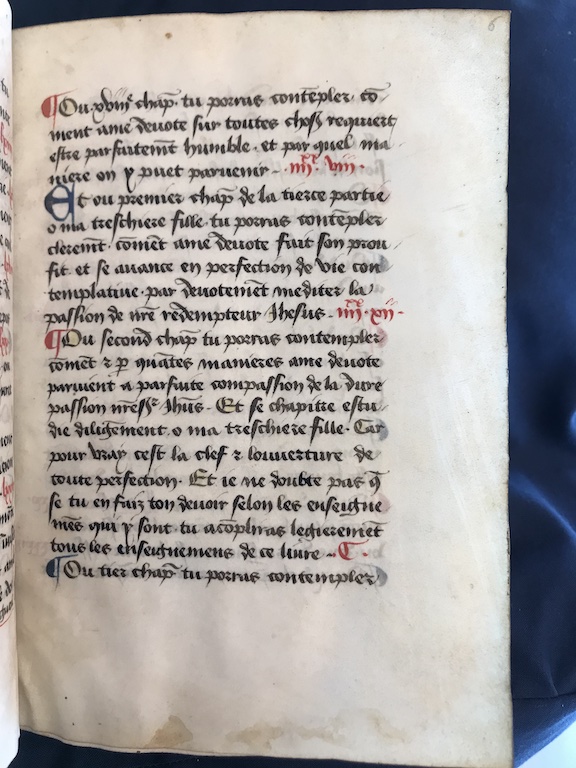 6
¶Ou xviije chap̄. tu porras contēpler cō-
ment ame deuote sur toutes choses requiert
estre parfaitemēt humble. et par quel ma-
niere on y puet paruenir. iiijxx. viii.
Et ou premier chap̄. de la tierce partie
o ma treschiere fille. tu porras contēpler
cleremēt. comēt ame deuote fait son prou-
fit et se auance en perfection de vie con
templatiue. par deuotemēt mediter la
passion de nr̄e redempteur Ihesus. iiijxx. xij.
¶Ou second chap̄ tu porras contempler
comēt ⁊ p̲ quātes manieres ame deuote
paruient a parfaite compassion de la dure
passion nr̄e sr̄ Ihūs. Et se chapitre estu-
die diligēment. o ma treschiere fille. Car
pour vray cest la clef ⁊ louuerture de
toute perfection. Et ie ne doubte pas q̄
se tu en faiz ton deuoir selon les enseigne
mēs qui y sont. tu acōpliras legieremēt
tous les enseignemens de ce liure. C.
¶Ou tier chap̄ tu porras contempler